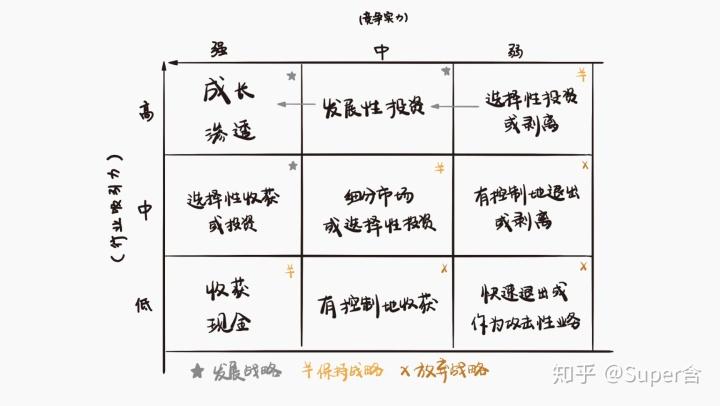 (竞争实力)
强 中 弱
高
成长
渗透
发展性投资
选择性投资
或剥离
(行业吸引力)
中
选择性收获
或投资
细分市场
或选择性投资
有控制地退出
或剥离
低
收获
现金
有控制地收获
快速退出或
作为攻击性业务
★ 发展战略 ¥保持战略 x放弃战略
知乎 @Super含